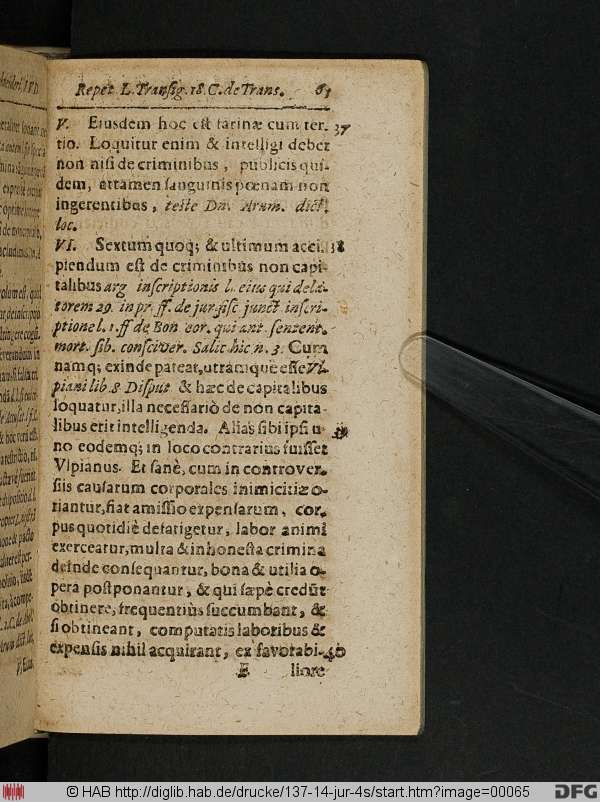 Repet. L. Transig. 18. C. de Trans. 65
V. Eiusdem hoc est farinæ cum ter- 37
tio. Loquitur enim & intelligi debet
non nisi de criminibus, publicis qui-
dem, attamen sanguinis pœnam non
ingerentibus, teste Da. Aram. dict.
loc.
VI. Sextum quoq; & ultimum acci- 38
piendum est de criminibus non capi-
talibus arg inscriptionis l. eius qui dela-
torem 29. in pr. ff. de jur. fisc junct inscri-
ptione l. 1. ff de Bon eor. qui ant. sentent.
mort. sib. consciver. Salic hic n. 3. Cum
namq; exinde pateat, utramque esse Vl-
piani lib 8 Disput & hæc de capitalibus
loquatur, illa necessariò de non capita-
libus erit intelligenda. Aliàs sibi ipsi u- 39
no eodemq; in loco contrarius fuisset
Vlpianus. Et sanè, cum in controver-
siis causarum corporales inimicitiæ o-
riantur, fiat amissio expensarum, cor-
pus quotidiè defatigetur, labor animi
exerceatur, multa & inhonesta crimina
deinde consequantur, bona & utilia o-
pera postponantur, & qui sæpè credūt
obtinere, frequentiùs succumbant, &
si obtineant, computatis laboribus &
expensis nihil acquirant, ex favorabi- 40
E liore
© HAB http://diglib.hab.de/drucke/137-14-jur-4s/start.htm?image=00065
DFG